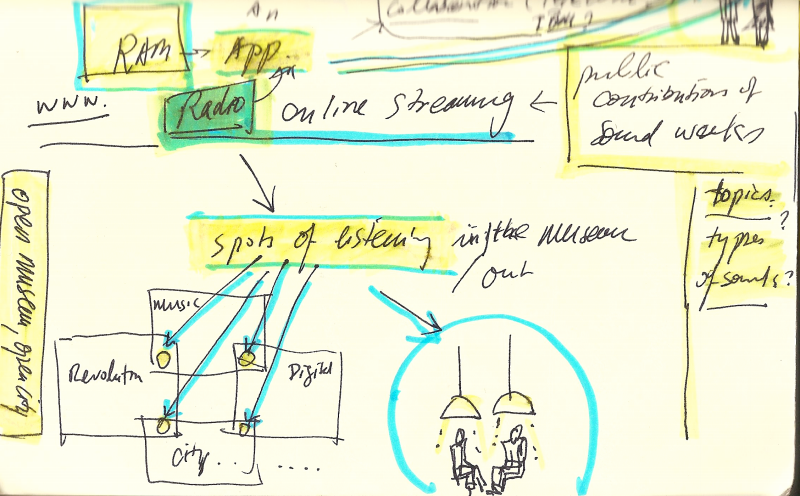 An
RAM → App
www. Radio online streaming ←
public
contributions of
sound works
topics?
types
of sounds?
spots of listening in/the museum
/out
open museum, open city
music
Revolution
Digital
City . . .
. . . . .